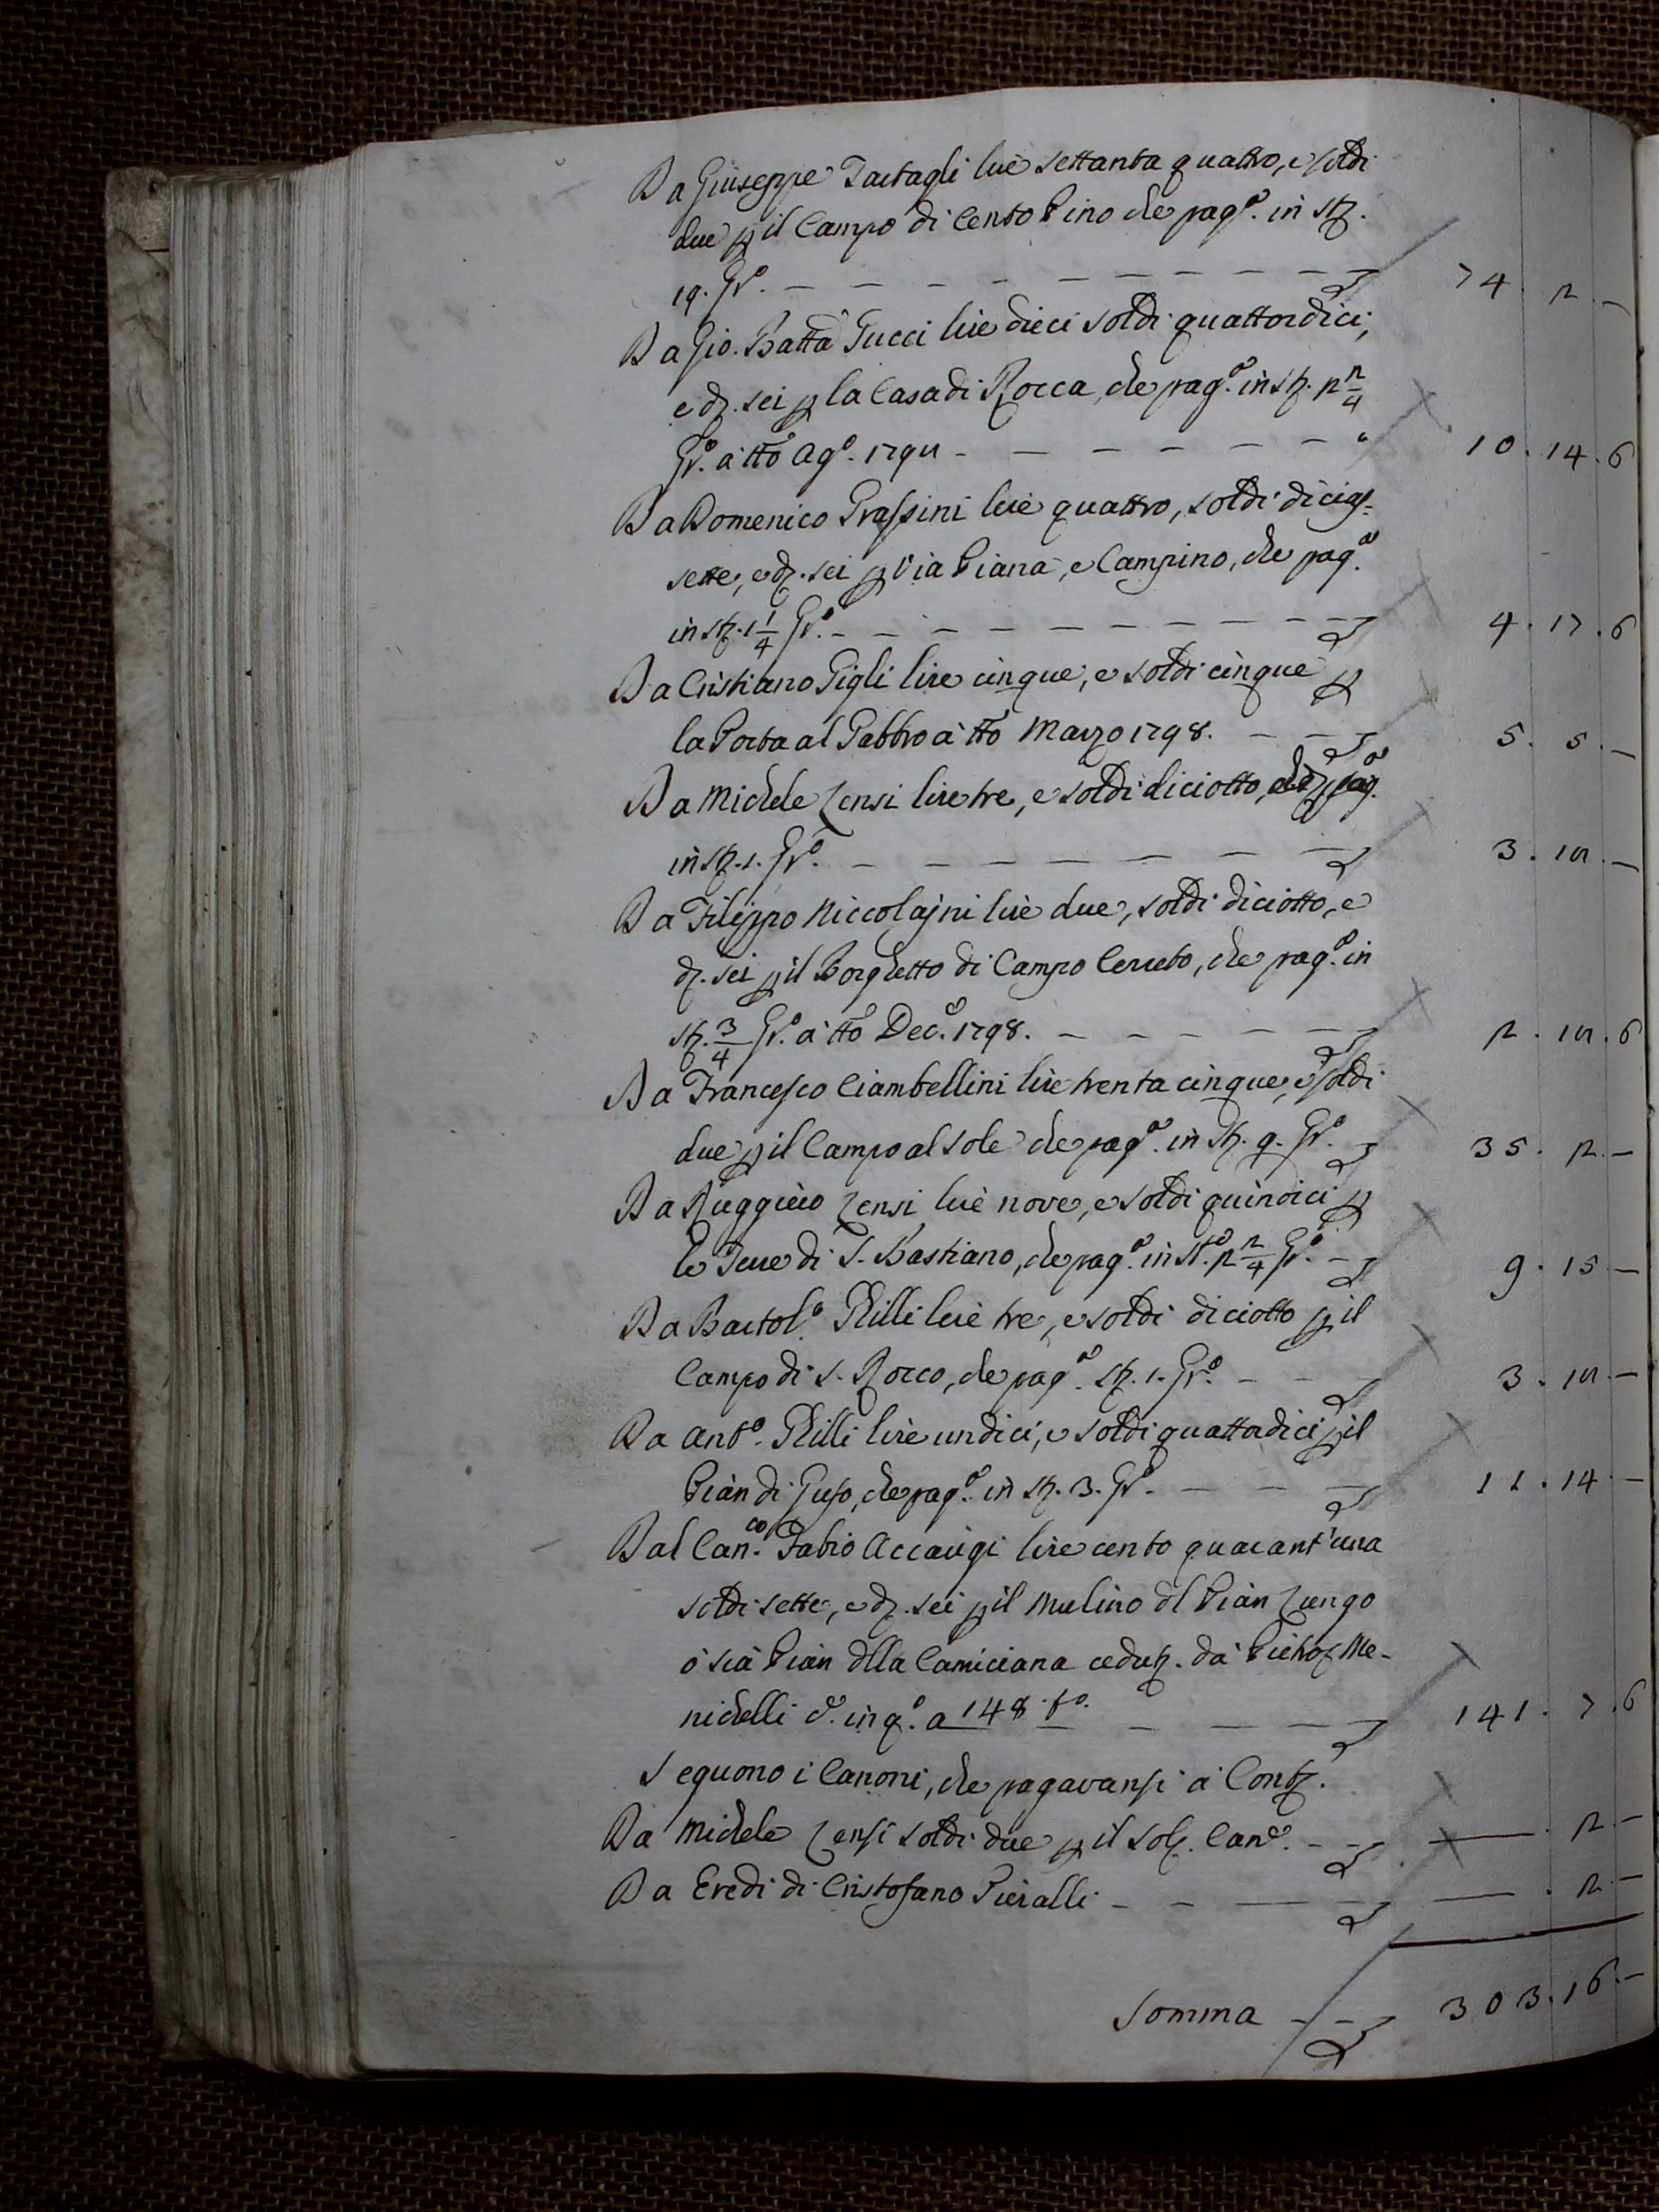 Da Giuseppe Tartagli lire settanta quattro, e soldi
due p il Campo di Cento Pino che pag.º in st.
19. Gr.º — — — — — — — — — 74. 2. —
Da Gio. Batta Gucci lire dieci soldi quattordici,
e d. sei p la Casa di Rocca, che pag.º in st. 2 2/4
Gr.º a tto Ag.º 1792 — — — — — — 10. 14. 6
Da Domenico Grassini lire quattro, soldi dicias-
sette, e d. sei p Via Piana, e Campino, che pag.º
in st. 1 1/4 Gr.º — — — — — — — — 4. 17. 6
Da Cristiano Gigli lire cinque, e soldi cinque p
la Porta al Gabbro a tto Marzo 1798. — — — 5. 5. —
Da Michele Censi lire tre, e soldi diciotto, che pag.º
in st. 1. Gr.º — — — — — — — 3. 18. —
Da Filippo Niccolajni lire due, soldi diciotto, e
d. sei p il Borghetto di Campo Cerreto, che pag.º in
st. 3/4 Gr.º a tto Dec.e 1798. — — — — — 2. 18. 6
Da Francesco Ciambellini lire trenta cinque, e soldi
due p il Campo al Sole che pag.º in st. 9. Gr.º — 35. 2. —
Da Ruggiero Censi lire nove, e soldi quindici p
le Terre di S. Bastiano, che pag.º in st. 2 2/4 Gr.º — 9. 15 —
Da Bartol.º Ghilli lire tre, e soldi diciotto p il
Campo di S. Rocco, che pag.º st. 1. Gr.º — — — 3. 18. —
Da Ant.º Ghilli lire undici, e soldi quattordici p il
Pian di Guso, che pag.º in st. 3. Gr.º — — — 11. 14 —
Dal Can.co Fabio Accarigi lire cento quarant'una
soldi sette, e d. sei p il Mulino dl Pian Lungo
ò sia Pian dlla Camiciana cedut. da Pietro Me-
nichelli in q.º a 148 t.º — — — — 141. 7. 6
Seguono i Canoni, che pagavansi a Cont.
Da Michele Censi soldi due p il sol. Can.e — — — . 2. —
Da Eredi di Cristofano Pieralli — — — — — . 2. —
Somma — — 303. 16. —